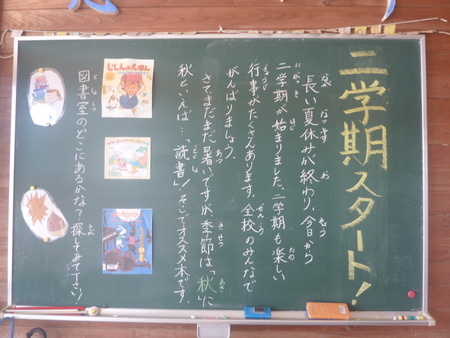 二学期スタート!
長い夏休みが終わり、今日から
二学期が始まりました。二学期も楽しい
行事がたくさんあります。全校のみんなで
がんばりましょう。
さて、まだまだ暑いですが、季節は「秋」に
秋といえば…「読書」!そこでオススメ本です。
じしんのえほん
図書室のどこにあるかな?探してみて下さい!